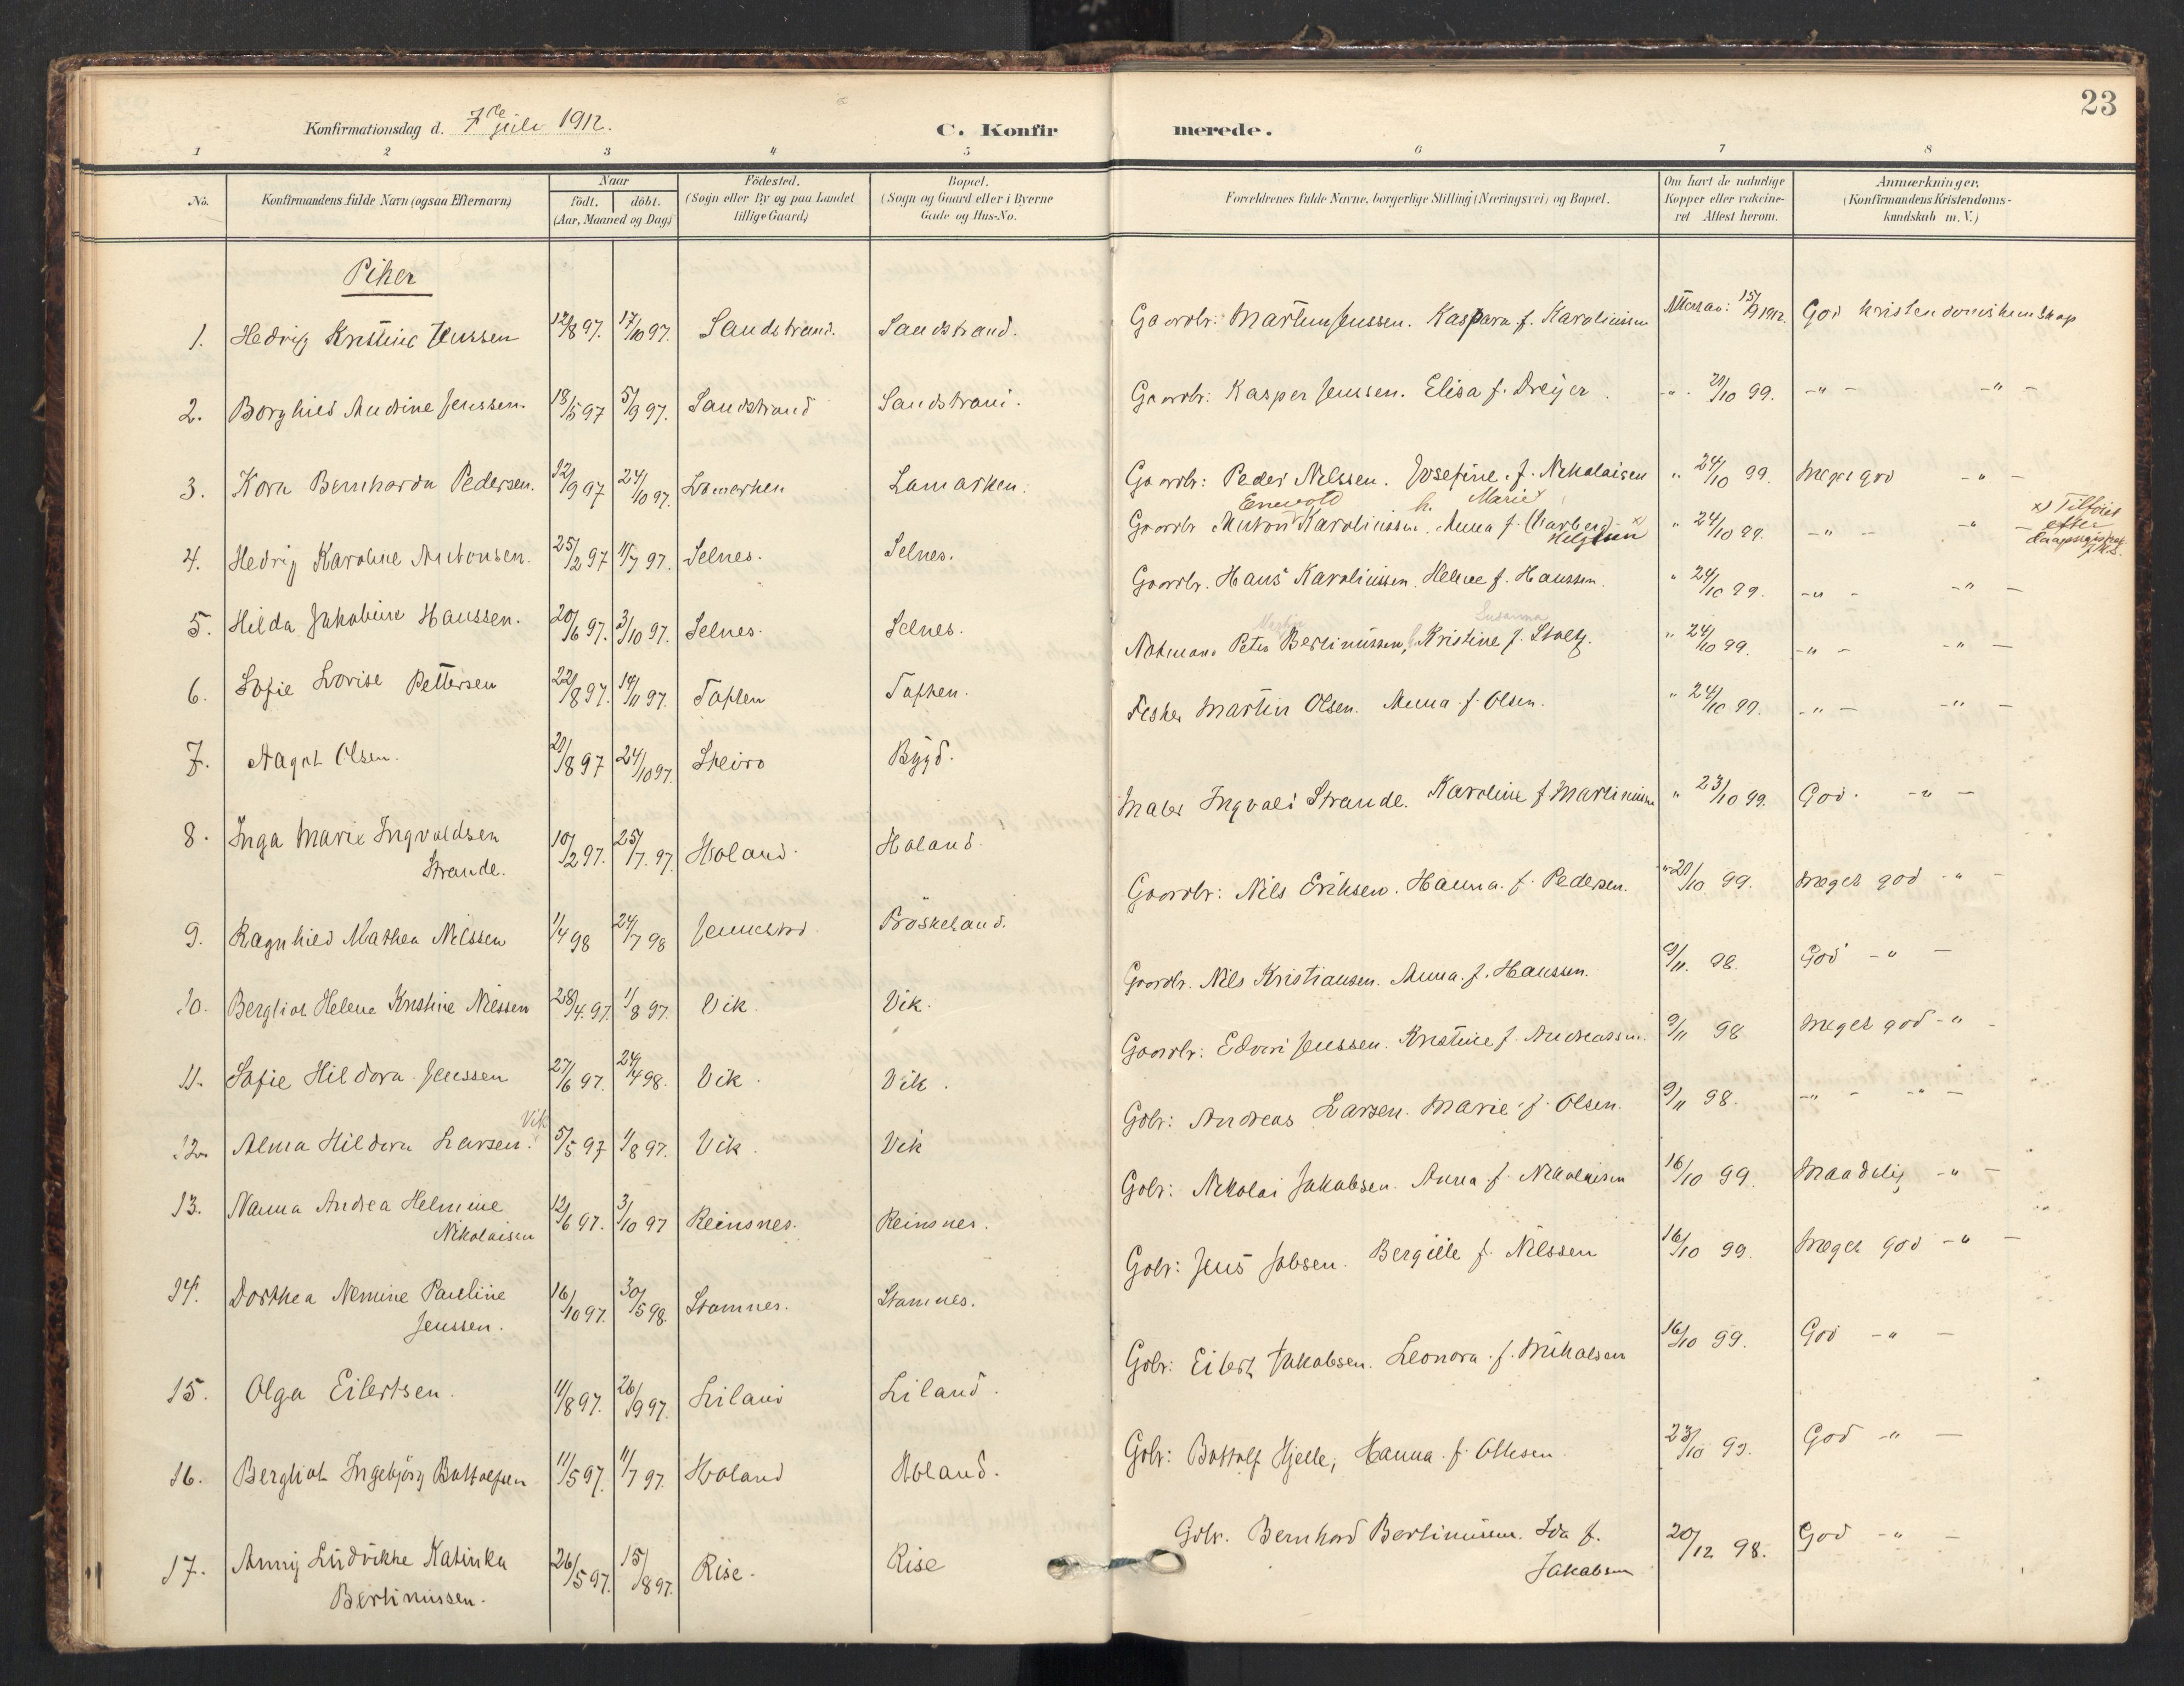 23
Konfirmationsdag d. 7de juli 1912.
C. Konfirmerede.
1 2 3 4 5 6 7 8
No.
Konfirmandens fulde Navn (ogsaa Efternavn)
Naar
födt. döbt.
(Aar, Maaned og Dag)
Födested.
(Sogn eller By og paa Landet
tillige Gaard)
Bopæl.
(Sogn og Gaard eller i Byerne
Gade og Hus-No.
Forældrenes fulde Navne, borgerlige Stilling (Næringsvei) og Bopæl.
Om havt de naturlige
Kopper eller vakcine-
ret Attest herom.
Anmærkninger.
(Konfirmandens Kristendoms-
kundskab m. V.)
Piker
1. Hedvig Kristine Jenssen 12/8 97. 17/10 97. Sandstrand. Sandstrand. Gaardbr: Martin Jenssen. Kaspara f. Karolinssen 15/9 1912. God kristendomskunskap
2. Borghild Andine Jenssen. 18/5 97 5/9 97. Sandstrand Sandstrand. Gaardbr: Kasper Jenssen. Elisa f. Dreyer. -"- 21/10 99. -"- -"-
3. Kora Bernharda Pedersen. 22/9 97 24/10 97. Lamarken Lamarken. Gaardbr: Peder Nilssen. Josefine f. Nikolaisen " 24/10 99. Meget god -"-
Enevold h. Marie
4. Hedvig Karoline Antonsen. 25/2 97 11/7 97. Selnes. Selnes. Gaardbr Anton Karolinssen. Anna f. (Karberg) x) " 24/10 99. -"- -"-
Helgesen
x) Tilföiet
efter
5. Hilda Jakobine Hanssen. 20/6 97. 3/10 97. Selnes. Selnes. Gaardbr. Hans Karolinssen. Helene f. Hanssen. " 24/10 99. -"- -"-
Susanna
6. Sofie Lovise Pettersen 22/8 97. 14/11 97. Toften Toften. Notmand Peter Bertinussen, Kristine f. Stoltz. " 24/10 99. -"- -"-
7. Aagot Olsen. 21/8 97 24/10 97. Steiro Bygd. Fisker Martin Olsen. Anna f. Olsen. " 24/10 99. -"- -"-
8. Inga Marie Ingvaldsen
Strande. 10/2 97. 25/7. 97 Holand. Holand. Maler Ingvald Strande. Karoline f Martinussen " 23/10 99. God. -"-
9. Ragnhild Mathea Nilssen 1/4 98 24/7 98 Jennestad. Fröskeland. Gaardbr: Nils Eriksen. Hanna f. Pedersen. " 21/10 99. Meget god -"-
10. Bergliot Helene Kristine Nilssen 28/4. 97. 1/8 97. Vik. Vik. Gaardbr. Nils Kristiansen. Anna f. Hanssen. 9/11. 98. God -"-
11. Sofie Hildora Jenssen 27/6 97. 24/4 98. Vik. Vik. Gaardbr: Edvin Jenssen. Kristine f. Andreassen. 9/11 98 Meget god -"-
Vik
12. Alma Hildora Larsen. 5/5 97 1/8 97. Vik. Vik Gdbr: Andreas Larsen. Marie f. Olsen. 9/11 98. -"- -"-
13. Nanna Andrea Helmine
Nikolaisen 12/6 97. 3/10 97 Reinsnes. Reinsnes. Gdbr: Nikolai Jakobsen. Anna f. Nikolaisen 16/10 99. Maadelig -"-
14. Dorthea Nemine Pauline
Jenssen. 16/10 97. 30/5 98. Stamnes. Stamnes. Gdbr: Jens Jobsen. Bergitte f. Nilssen 16/10 99. Meget god -"-
15. Olga Eilertsen. 11/8 97. 26/9 97. Liland Liland. Gdbr: Eilert Jakobsen. Leonora f. Mikalsen 16/10 99. God -"-
16. Bergliot Ingebjörg Bottolfsen 11/5 97. 11/7 97. Holand Holand. Gdbr: Bottolf Hjelle, Hanna f. Ottesen. 23/10 99. God -"-
17. Anny Ludvikke Katinka
Bertinussen. 26/5 97. 15/8 97. Rise. Rise Gdbr. Bernhard Bertinussen. Ida f.
Jakobsen 20/12 98. God -"-